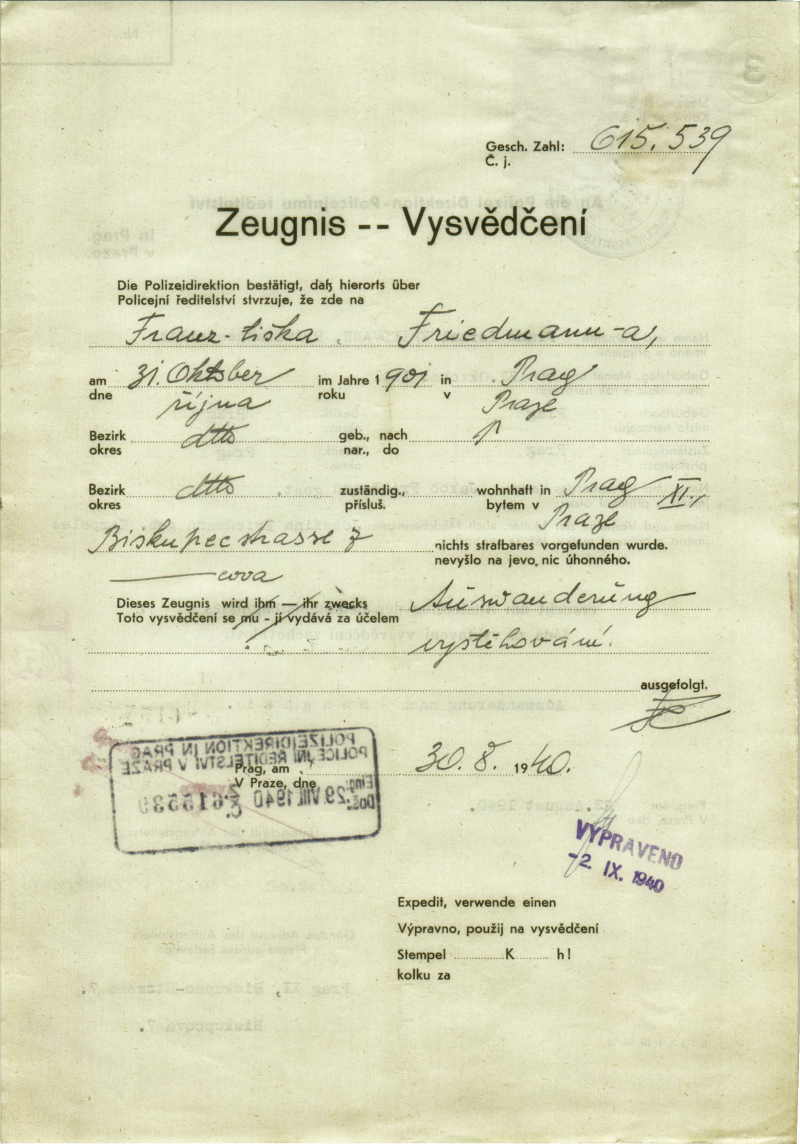 Gesch. Zahl: 615.539
Č. j.
Zeugnis -- Vysvědčení
Die Polizeidirektion bestätigt, daß hierorts über
Policejní ředitelství stvrzuje, že zde na
Franz-tiška Friedmann-a,
am 31. Oktober im Jahre 1901 in Prag
dne října roku v Praze
Bezirk dtto geb., nach
okres nar., do
Bezirk dtto zuständig., wohnhaft in Prag XI.,
okres přísluš. bytem v Praze
Biskupecstrasse 7 nichts strafbares vorgefunden wurde.
nevyšlo na jevo, nic úhonného.
— cova
Dieses Zeugnis wird ihm — ihr zwecks Auswanderung
Toto vysvědčení se mu - jí vydává za účelem
vystěhování.
ausgefolgt.
POLIZEIDIREKTION IN PRAG
POLICEJNÍ ŘEDITELSTVÍ V PRAZE
Prag, am 30. 8. 1940.
V Praze, dne
Eing.
Doš. 29. VIII. 1940 615539
Č.
VYPRAVENO
-2. IX. 1940
Expedit, verwende einen
Výpravno, použij na vysvědčení
Stempel K h!
kolku za